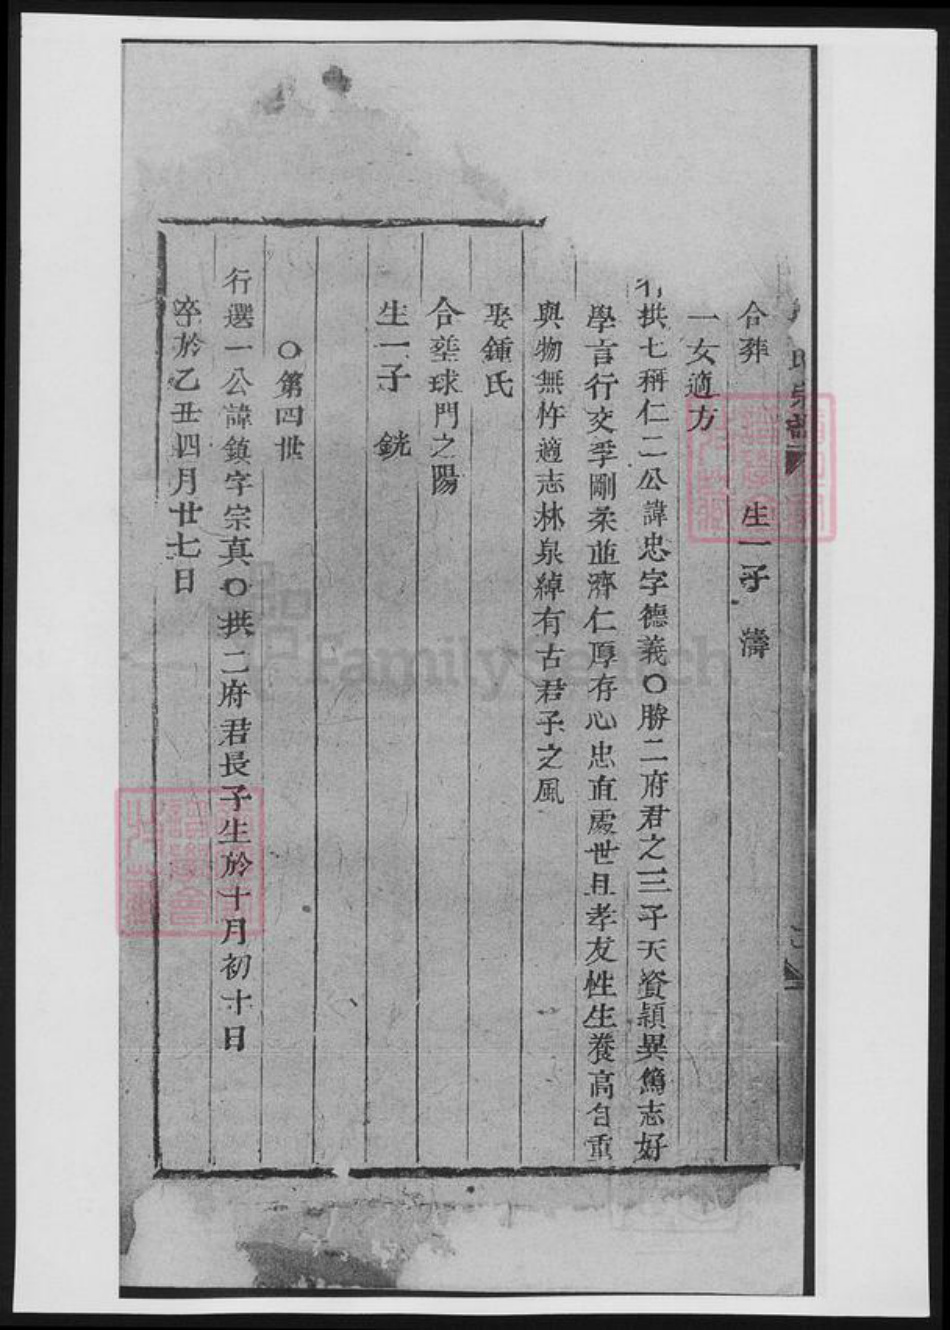 氏宗譜
合葬　生一子　濤
一女適方
行拱七稱仁二公諱忠字德義○勝二府君之三子天資穎異篤志好
學言行交孚剛柔並濟仁厚存心忠直處世且孝友性生養高自重
與物無忤適志林泉綽有古君子之風
娶鍾氏
合塟球門之陽
生一子　銑
○第四世
行選一公諱鎮字宗真○拱二府君長子生於十月初十日
卒於乙丑四月廿七日
FamilySearch